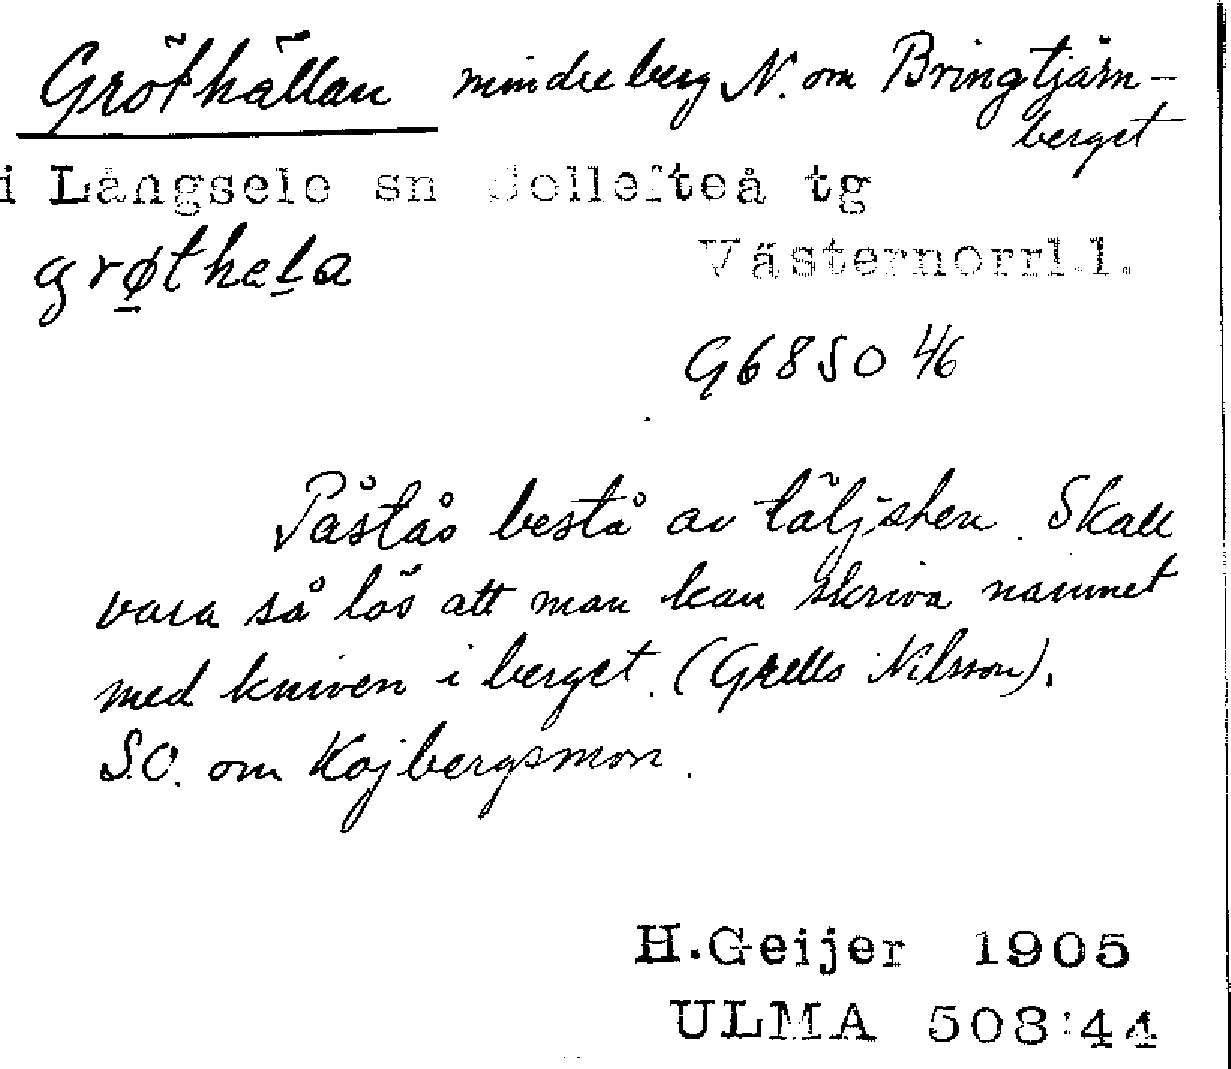 Gröthällan mindre berg N. om Bringtjärn-
berget
i Långsele sn Sollefteå tg
grøtheła Västernorrl.l.
G6850 46
Påstås bestå av täljsten. Skall
vara så lös att man kan skriva namnet
med kniven i berget. (Grells Nilsson).
S.O. om Kojbergsmon.
H.Geijer 1905
ULMA 508:44